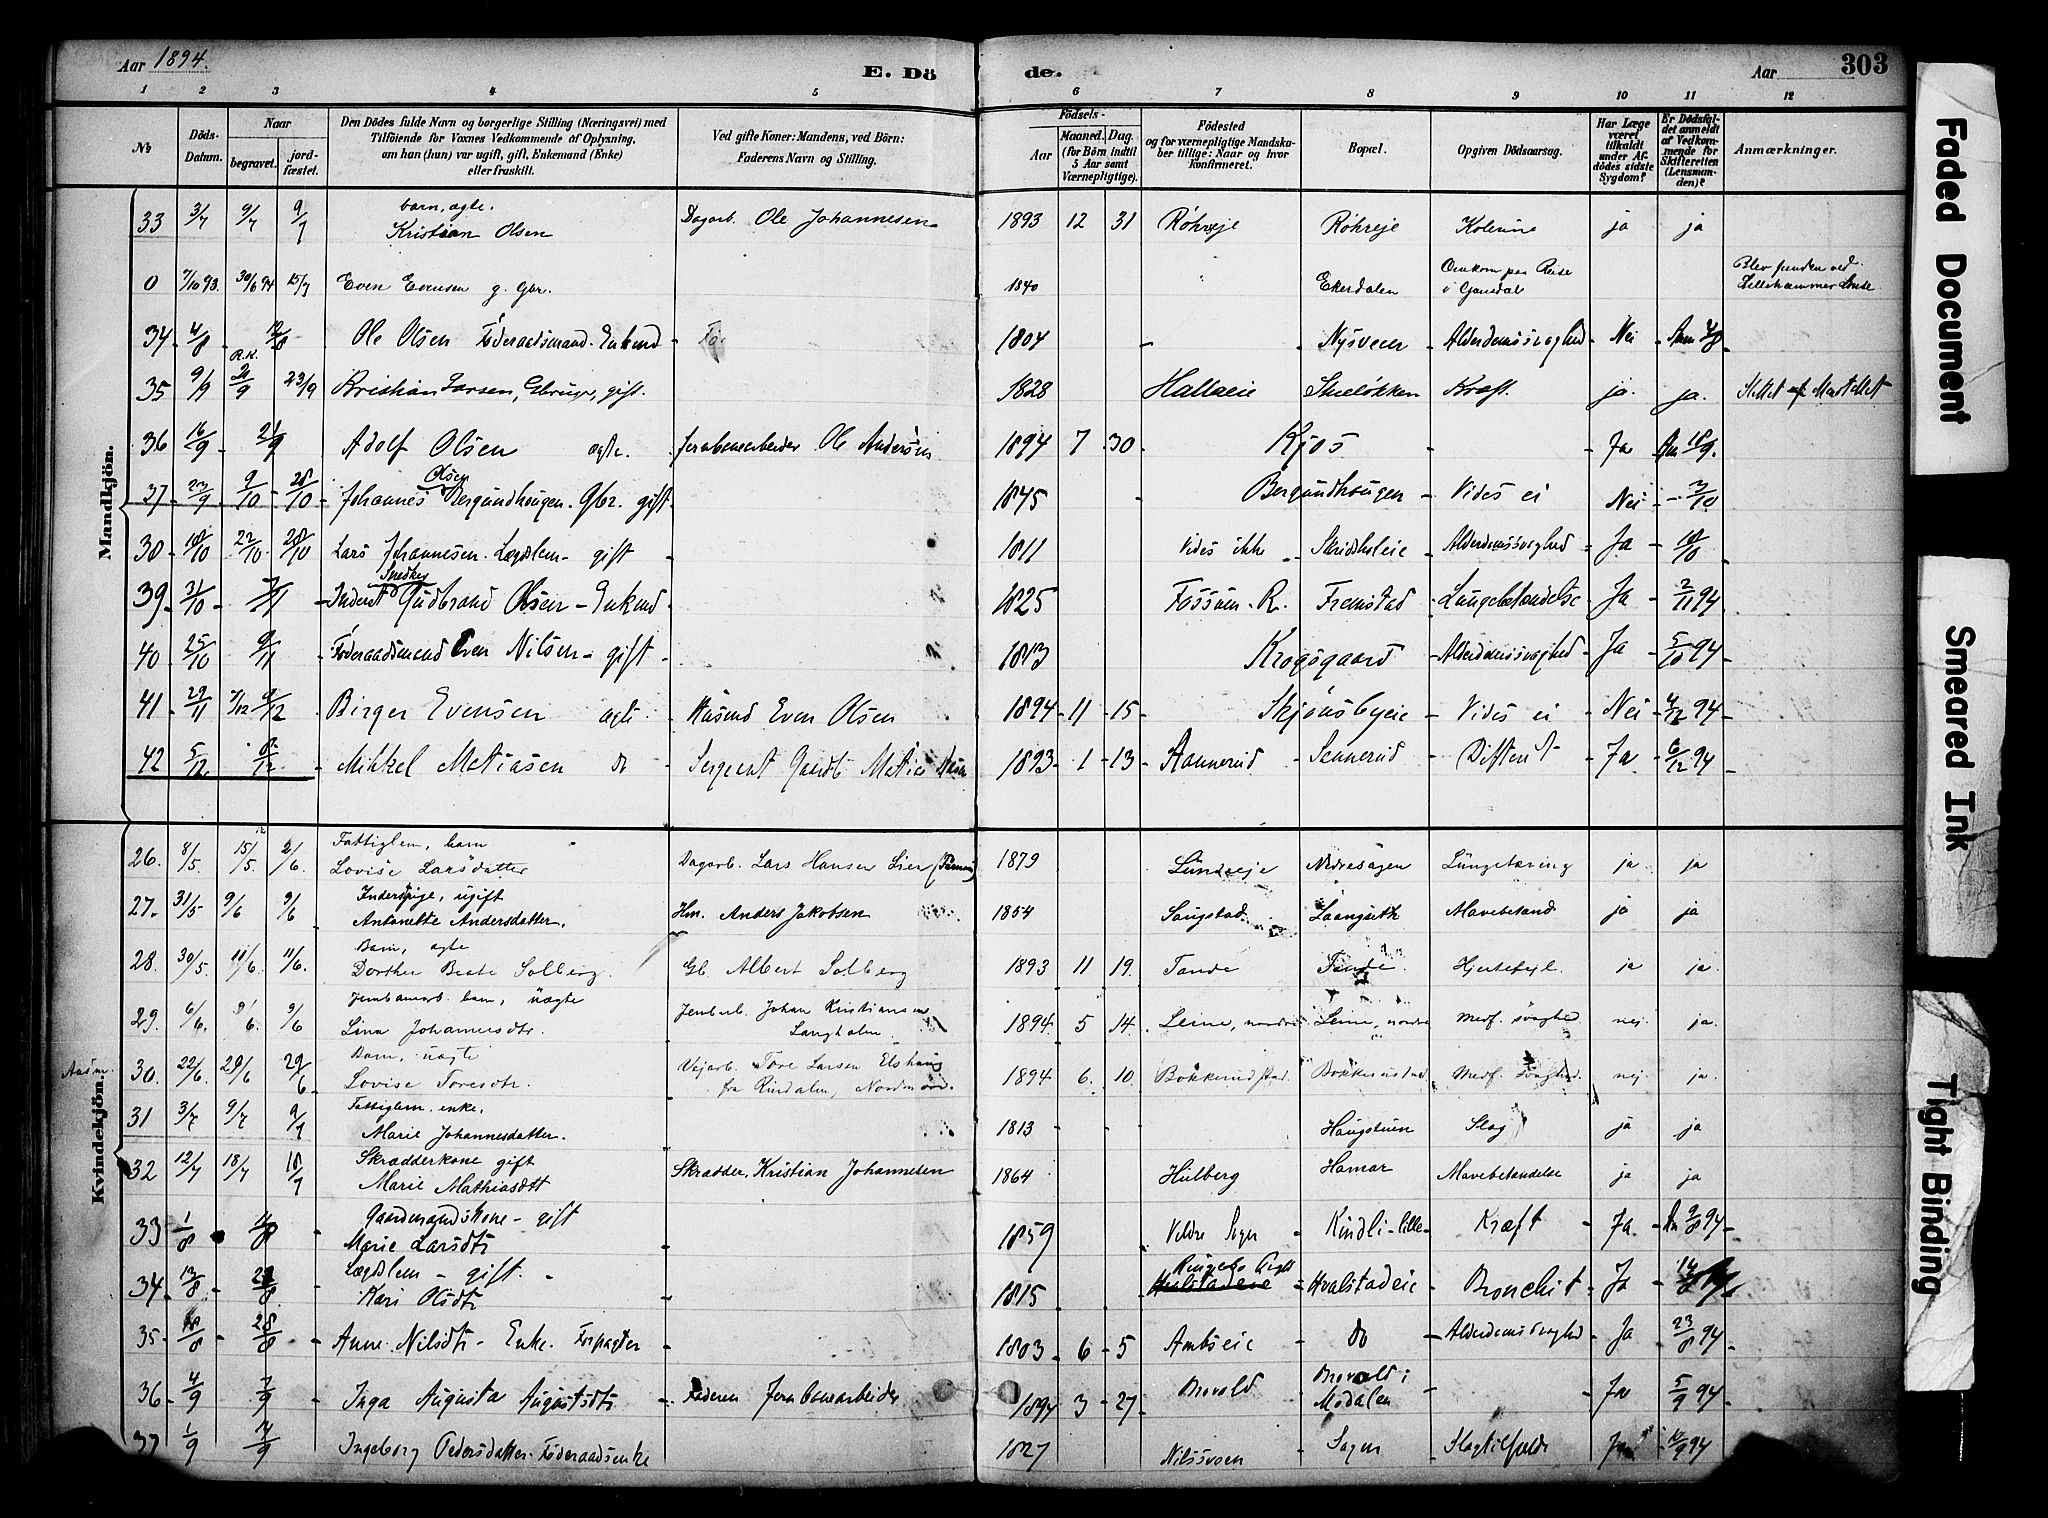 Aar 1894.
E. Dö de.
Aar
303
1 2 3 4 5 6 7 8 9 10 11 12
No
Döds-Datum.
Naar
begravet.
jord-fæstet.
Den Dödes fulde Navn og borgerlige Stilling (Næringsvei) med
Tilföiende for Voxnes Vedkommende af Oplysning,
om han (hun) var ugift, gift, Enkemand (Enke)
eller fraskilt.
Ved gifte Koner: Mandens, ved Börn:
Faderens Navn og Stilling.
Födsels-
Aar
Maaned. Dag.
(for Börn indtil
5 Aar samt
Værnepligtige).
Födested
og for værnepligtige Mandska-
ber tillige: Naar og hvor
konfirmeret.
Bopæl.
Opgiven Dödsaarsag.
Har Læge
været
tilkaldt
under Af-
dödes sidste
Sygdom?
Er Dödsfal-
det anmeldt
af Vedkom-
mende for
Skifteretten
(Lensman-
den)?
Anmærkninger.
Mandkjön.
33 3/7 9/7 9/7 barn, ægte. Kristian Olsen Dagarb. Ole Johannesen 1893 12 31 Røhreje Røhreje Kolerine ja ja
0 7/10 93. 30/6 94 15/7 Even Evensen g. Gbr. 1840 Ekerdalen Omkom paa Reise i Gausdal Blev funden ved Lillehammer
34 4/8 12/8 Ole Olsen Føderaadsmand. Enkmd 1804 Nysveen Alderdomssvaghed Nei
35 9/9 R.K. 21/9 23/9 Kristian Larsen, Gbruger, gift. 1828 Hallaeie Skeeløkken Kræft. ja. ja.
36 16/9 21/9 Adolf Olsen ægte. Jernbanearbeider Ole Andersen 1894 7 30 Kjos Ja Am 18/9.
37 23/9 9/10 28/10 Johannes Olsen Bergundhougen. Gbr. gift. 1845 Berqundhougen Vides ei Nei 3/10
38 18/10 22/10 28/10 Lars Johannesen. Lægdslem gift 1811 Vides ikke Skridsholeie Alderdomssvaghed Ja 18/10
39 31/10 7/11 Inderst Snedker Gudbrand Olsen Enkmd 1825 Fossum. R. Fremstad Lungebetændelse Ja 2/11 94
40 25/10 9/11 Føderaadsmand Even Nilsen gift 1813 Krogsgaard Alderdomssvaghed Ja 5/10 94
41 29/11 7/12 9/12 Birger Evensen ægte Husmd Even Olsen 1894 11 15 Skjønsbyeie Vides ei Nei 4/12 94
42 5/12 8/12 Mikkel Matiasen do Sergeant Gundb. Matias 1893 1 13 Sannerud Sannerud Difterit Ja 6/12 94
Kvindekjön.
26. 8/5 15/5 2/6 Fattiglem, barn Lovise Larsdatter Dagarb. Lars Hansen Lier 1879 Lundseje Nedresagen Lungetæring ja ja
27. 31/5 9/6 9/6 Inderstpige, ugift Antonette Andersdatter. Hm. Anders Jakobsen 1854 Saugstad Mavebetænd ja ja
28. 30/5. 11/6. 11/6. Barn, ægte Dorthea Beate Solberg. Gb. Albert Solberg 1893 11 19. Tande Tande. Hjertefejl. ja ja.
29. 6/6. 9/6. 9/6 Jernbanearb. barn, uægte Lina Johannesdtr. Jernb. Johan Kristiansen Langholm. 1894. 5 14. Leine, nordre Leine, nordre Medf. svaghe nej ja.
30. 22/6. 29/6 29/6 Barn, uægte Lovise Toresdtr. Vejarb. Tore Larsen Elshaug fra Rindalen, Nordmøre. 1894 6. 10. Bokkerudstad. Bokkerudstad. Medf. svaghed. nej ja.
31 3/7 9/7 9/7 Fattiglem. enke. Marie Johannesdatter. 1813 Haugstuen Slag ja ja
32 12/7 18/7 18/7 Skrædderkone gift Marie Mathiasdtt Skrædder, Kristian Johannesen 1864 Hulberg Hamar Mavebetændelse ja ja
33 1/8 Gaardmandskone gift Marie Larsdtr 1859 Veldre Sogn Kindli lille Kræft Ja Am 9/8 94
34 13/8 Lægdslem gift. Kari Olsdtr 1815 Ringebo Hvalstadeie Hvalstadeie Bronchit Ja
35 18/8 28/8 Anne Nilsdtr Enke. Forpagter 1803 6 5 Ambseie do Alderdomssvaghed Ja 23/8 94
36 4/9 7/9 Inga Augusta Augustsdtr Faderen Jernbanearbeider 1894 3 27 Brovold Brovold i Modalen Ja 5/9 94
37 1/9 7/9 Ingeborg Pedersdatter Føderaadsenke 1827 Nilssveen Sogn Slagtilfælde Ja
Faded Document
Smeared Ink
Tight Binding